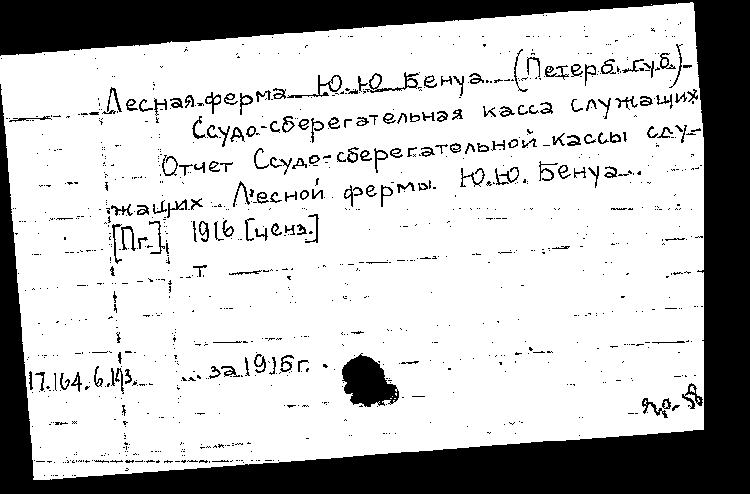 Лесная ферма Ю.Ю. Бенуа (Петерб. губ.)
Ссудо-сберегательная касса служащих
Отчет Ссудо-сберегательной кассы слу-
жащих Лесной фермы Ю.Ю. Бенуа...
[Пг.], 1916 [ценз.]
т
17.164.6.143. ... за 1915 г.